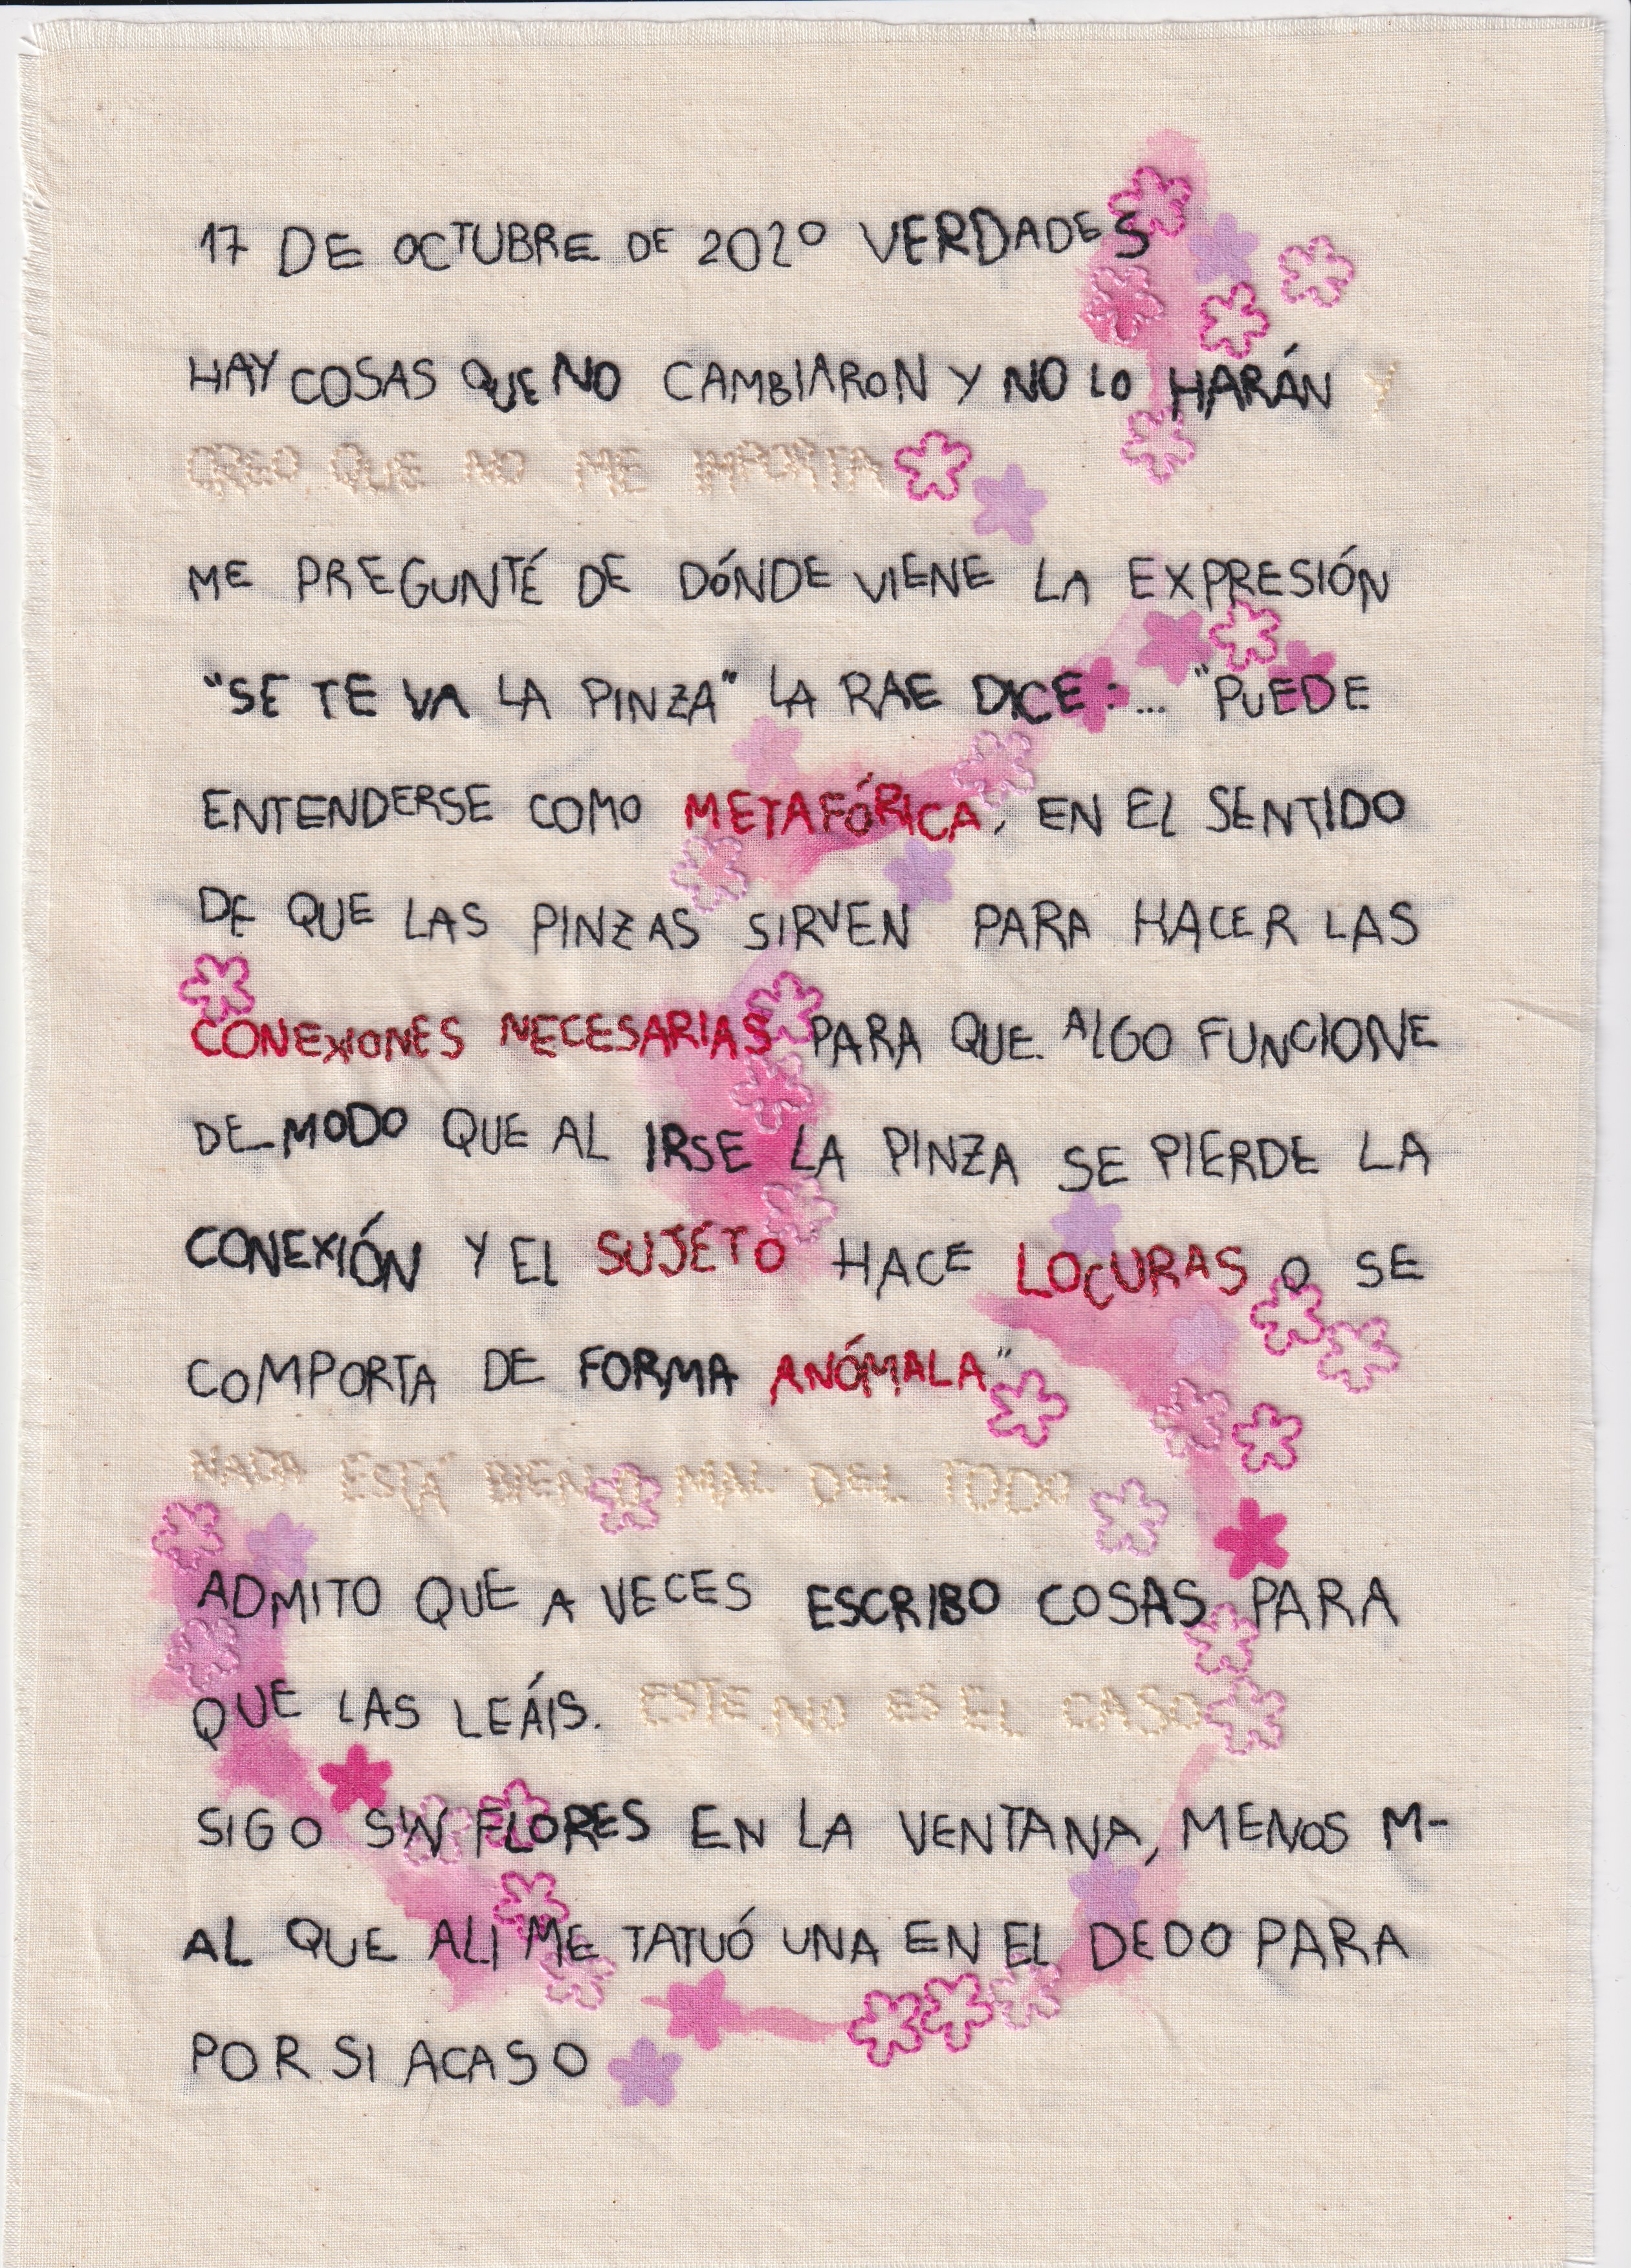 17 DE OCTUBRE DE 2020 VERDADES
HAY COSAS QUE NO CAMBIARON Y NO LO HARÁN Y
CREO QUE NO ME IMPORTA
ME PREGUNTÉ DE DÓNDE VIENE LA EXPRESIÓN
"SE TE VA LA PINZA" LA RAE DICE: ... "PUEDE
ENTENDERSE COMO METAFÓRICA, EN EL SENTIDO
DE QUE LAS PINZAS SIRVEN PARA HACER LAS
CONEXIONES NECESARIAS PARA QUE ALGO FUNCIONE
DE MODO QUE AL IRSE LA PINZA SE PIERDE LA
CONEXIÓN Y EL SUJETO HACE LOCURAS O SE
COMPORTA DE FORMA ANÓMALA"
NADA ESTÁ BIEN O MAL DEL TODO
ADMITO QUE A VECES ESCRIBO COSAS PARA
QUE LAS LEÁIS. ESTE NO ES EL CASO
SIGO SIN FLORES EN LA VENTANA, MENOS M-
AL QUE ALI ME TATUÓ UNA EN EL DEDO PARA
POR SI ACASO